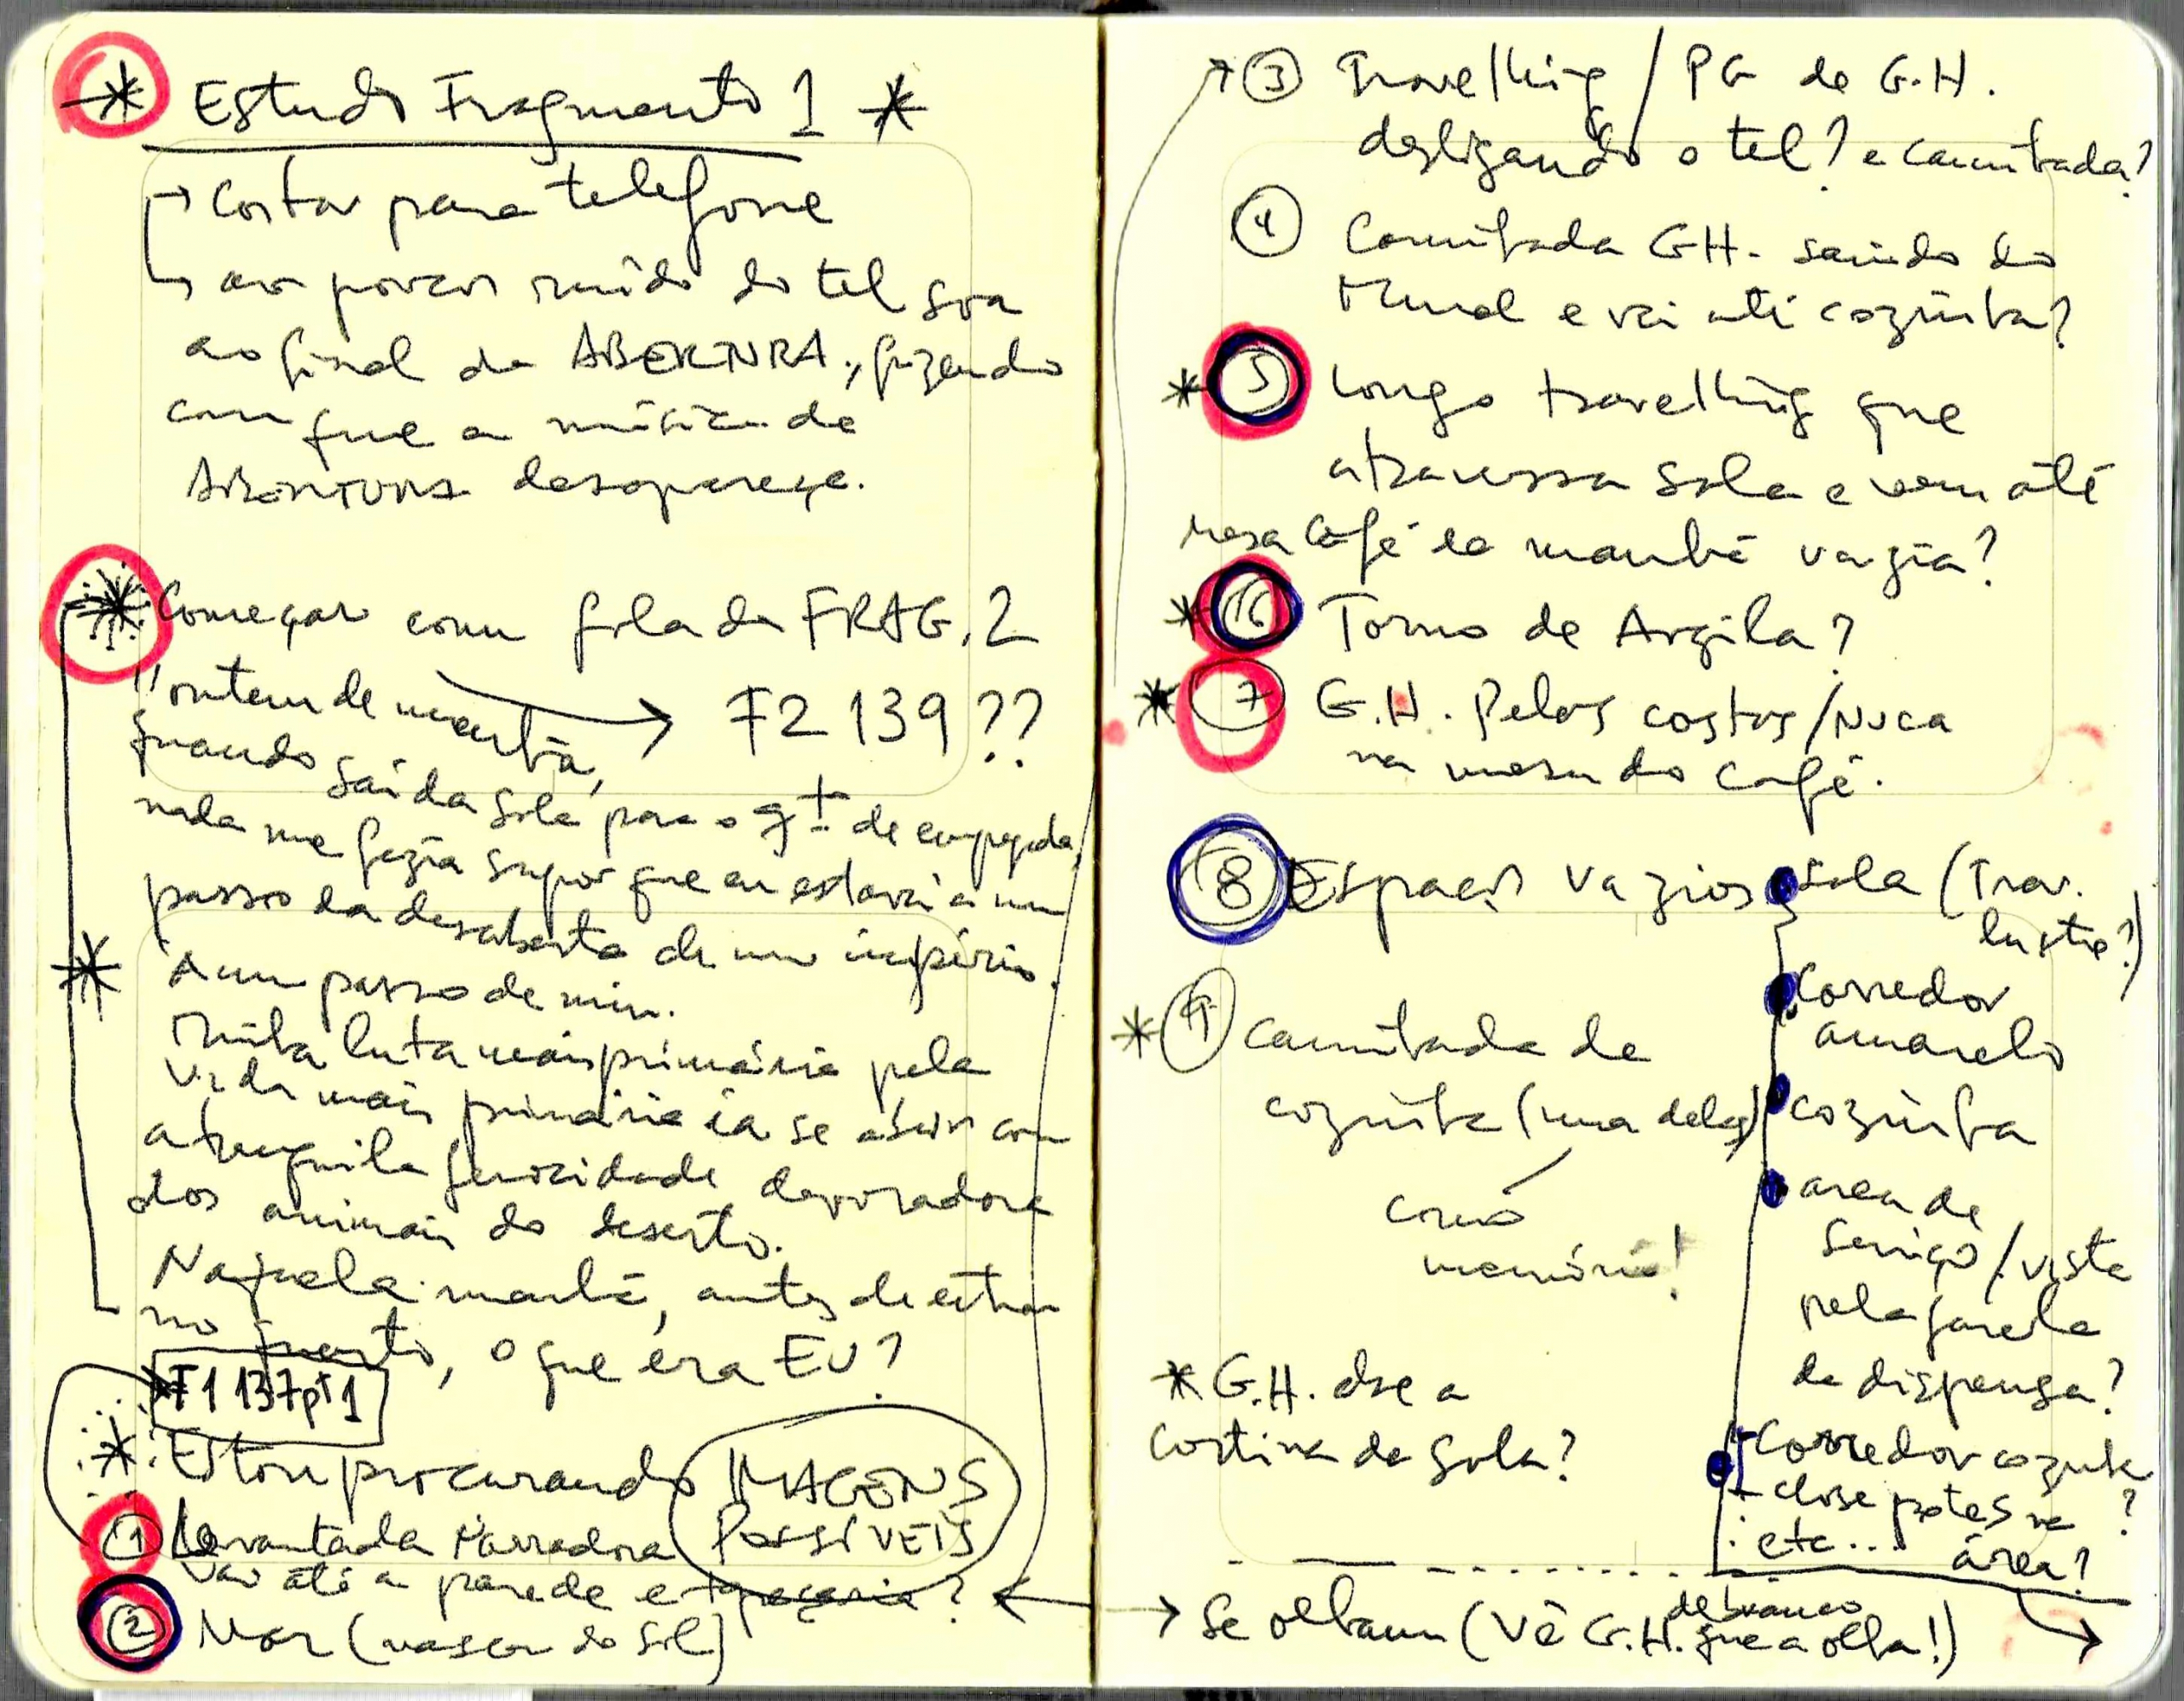 * Estudo Fragmento 1 *
→ Cortar para telefone
↳ aos poucos ruído do tel soa
ao final da ABERTURA, fazendo
com que a música de
ABERTURA desapareça.
* Começar com fala da FRAG. 2
"ontem de manhã, → F2 139??
quando saí da sala para o qt. de empregada,
nada me fazia supor que eu estava a um
passo da descoberta de um império.
* A um passo de mim.
Minha luta mais primária pela
vida mais primária ia se abrir com
a tranquila ferocidade devoradora
dos animais do deserto.
Naquela manhã, antes de entrar
no quarto, o que era EU?
F1 137 pt 1
* Estou procurando IMAGENS
POSSÍVEIS
① levantada narradora
vai até a parede e ?
② Mar (nascer do sol)
③ Travelling / PG de G.H.
desligando o tel? e caminhada?
④ Caminhada G.H. saindo do
e vai até cozinha?
* ⑤ Longo travelling que
atravessa sala e vem até
mesa café da manhã vazia?
* ⑥ Torno de Argila?
* ⑦ G.H. pelas costas/nuca
na mesa do café.
⑧ Espaços vazios • sala (Trav.
lustre?)
• Corredor
amarelo
* ⑨ caminhada de
cozinha (uma delas)
como
memória!
• cozinha
• area de
serviço / vista
pela janela
da dispensa?
* G.H. abre a
cortina da sala?
• - Corredor cozinha
- close potes na ?
área?
. etc...
→ Se olham (Vê G.H. de branco
que a olha!) →